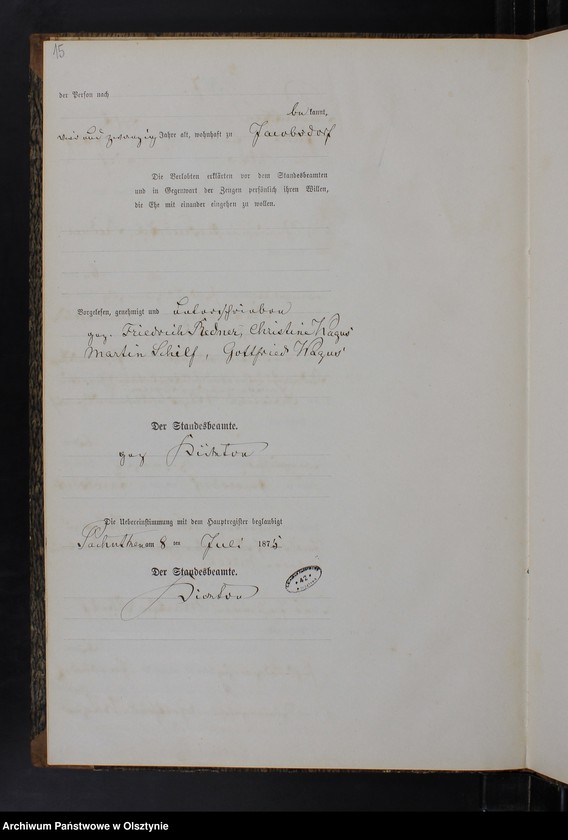 15
der Person nach
be kannt,
vier und zwanzig Jahre alt, wohnhaft zu Jacobsdorf
Die Verlobten erklärten vor dem Standesbeamten
und in Gegenwart der Zeugen persönlich ihren Willen,
die Ehe mit einander eingehen zu wollen.
Vorgelesen, genehmigt und unterschrieben
gez. Friedrich Redner, Christine Kagus
Martin Schilf, Gottfried Kagus
Der Standesbeamte.
gez
Die Uebereinstimmung mit dem Hauptregister beglaubigt
am 8 ten Juli 1875
Der Standesbeamte.
Archiwum Państwowe w Olsztynie